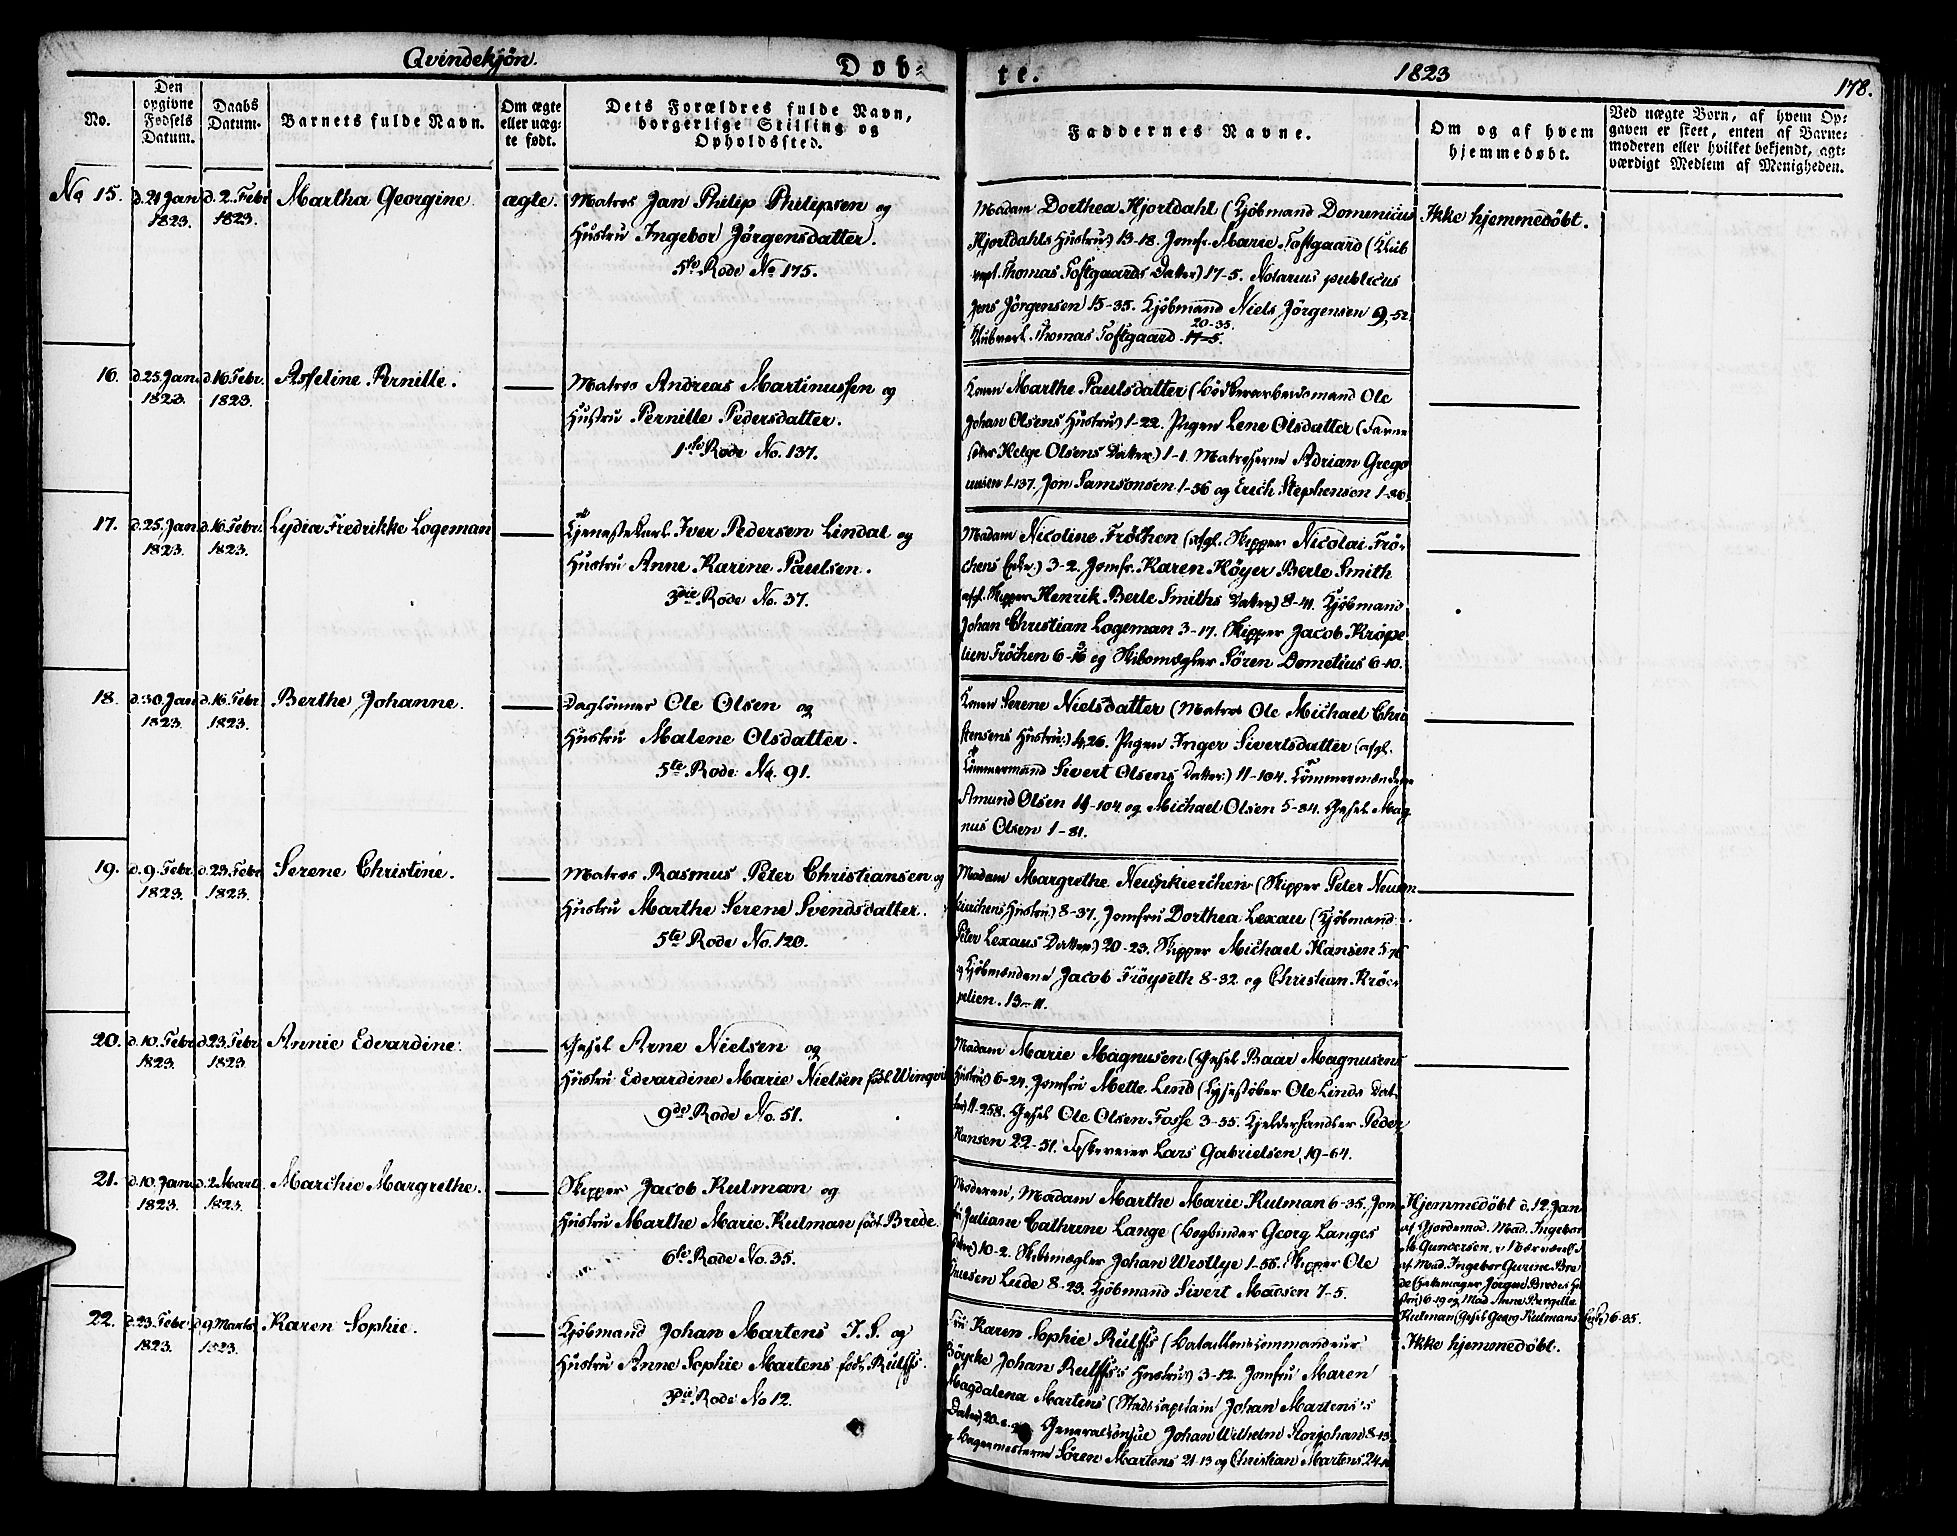 Qvindekjøn.
Døb-
te.
1823
178.
No.
Den opgivne Fødsels Datum.
Daabs Datum.
Barnets fulde Navn.
Om ægte eller uæg-te født.
Dets Forældres fulde Navn, borgerlige Stilling og Opholdssted.
Faddernes Navne.
Om og af hvem hjemmedøbt.
Ved uægte Børn, af hvem Op-gaven er skeet, enten af Barne-moderen eller hvilket bekjendt, agt-værdigt Medlem af Menigheden.
No 15.
d. 21 Jan 1823.
d. 2. Febr 1823.
Martha Georgine.
ægte.
Matros Jan Philip Philipsen og
Hustru Ingebor Jörgensdatter.
5te Rode No 175.
Madam Dorthea Hjortdahl (Kjöbmand Domenicus
Hjortdahls Hustru) 13-18. Jomfr. Marie Toftgaard (Klub
vert Thomas Toftgaards Datter) 17-5. Notarius publicus
Jens Jörgensen 15-35. Kjöbmand Niels Jörgensen 9-52.
Klubvert Thomas Toftgaard 17-5. 20-35.
Ikke hjemmedøbt.
16.
d. 25. Jan. 1823.
d. 16 Febr. 1823.
Asseline Pernille.
Matros Andreas Martinussen og
Hustru Pernille Pedersdatter.
1ste Rode No. 137.
Konen Marthe Paulsdatter (Bödkerarbeidsmand Ole
Johan Olsens Hustru) 1-22. Pigen Lene Olsdatter (Farve
Helge Olsens Datter) 1-1. Matroserne Adrian Grego
riusen 1-137, Jon Samsonsen 1-56 og Erich Stephensen 1-86.
17.
d. 25. Jan 1823.
d. 16 Febr. 1823.
Lydia Fredrikke Logeman
Tjenestekarl Iver Pedersen Lindal og
Hustru Anne Karine Paulsen.
3die Rode No. 37.
Madam Nicoline Fröchen (afgl. Skipper Nicolai Frö-
chens Enke) 3-2. Jomfr. Karen Höyer Berle Smith
(afgl. Skipper Henrik Berle Smiths Datter) 8-41. Kjöbmand
Johan Christian Logeman 3-17. Skipper Jacob Kröpe
lien Fröchen 6-16 og Skibsmægler Sören Dometius 6-10.
18.
d. 30. Jan 1823.
d. 16 Febr. 1823.
Berthe Johanne.
Daglönner Ole Olsen og
Hustru Malene Olsdatter.
5te Rode No. 91.
Konen Serene Nielsdatter (Matros Ole Michael Chri
stensens Hustru) 4-26. Pigen Inger Sivertsdatter (afgl.
Tömmermand Sivert Olsens Datter) 11-104. Tömmermændene
Amund Olsen 11-104 og Michael Olsen 5-84. Gesel Mag
nus Olsen 1-81.
19.
d. 9. Febr 1823.
d. 23. Febr 1823.
Serene Christine.
Matros Rasmus Peter Christiansen og
Hustru Marthe Serene Svendsdatter.
5te Rode No. 120.
Madam Margrethe Neunkierchen (Skipper Peter Neun
kirchens Hustru) 8-37, Jomfru Dorthea Lexau (Kjöbmand
Peter Lexaus Datter) 20-23. Skipper Michael Hansen 5-
og Kjöbmændene Jacob Fröyseth 8-32 og Christian Krö-
pelien. 13-11.
20.
d. 10. Febr 1823.
d. 23. Febr 1823.
Annie Edvardine.
Gesel Arne Nielsen og
Hustru Edvardine Marie Nielsen födt
9de Rode No. 51.
Madam Marie Magnusen (Gesel Baar Magnusens
Hustru) 6-24. Jomfru Mette Lind (Lysestöber Ole Linds Dat-
ter) 11-258. Gesel Ole Olsen Fosse 3-55. Kjelderhandler Peder
Hansen 22-51. Lars Gabrielsen 19-64.
21.
d. 10. Jan 1823.
d. 2 Marts 1823.
Marchie Margrethe.
Skipper Jacob Kulman og
Hustru Marthe Marie Kulman födt Brede.
6te Rode No. 35.
Moderen, Madam Marthe Marie Kulman 6-35, Jom
fru Juliane Cathrine Lange (Bogbinder Georg Langes
Datter) 10-2. Skibsmægler Johan Westlye 1-56. Skipper Ole
Leide 8-23. Kjöbmand Sivert Madsen 7-5.
Hjemmedøbt d. 12 Jan
af Gjordemod. Mad. Ingebor
Gundersen, i Nærværelse
af Mad. Ingebor Gurine Bre
de (Hatmager Jörgen Bredes Hu
stru) 6-19 og Mad. Anne Bergitte
Kulman (Gesel Georg Kulmans Enke) 6-35.
22.
d. 23. Febr 1823.
d. 9 Marts 1823.
Karen Sophie.
Kjöbmand Johan Martens J. S. og
Hustru Anne Sophie Martens födt Rulffs.
3die Rode No 12.
Fru Karen Sophie Rulffs (Bataillonscommandeur
Böycke Johan Rulffs's Hustru) 3-12. Jomfru Maren
Magdalena Martens (Stadscapitain Johan Martens's
Datter) 20- Generalkonsul Johan Wilhelm Storjohan 8-13.
og Bagermesterne Sören Martens 21-13 og Christian Martens 24-
Ikke hjemmedøbt.